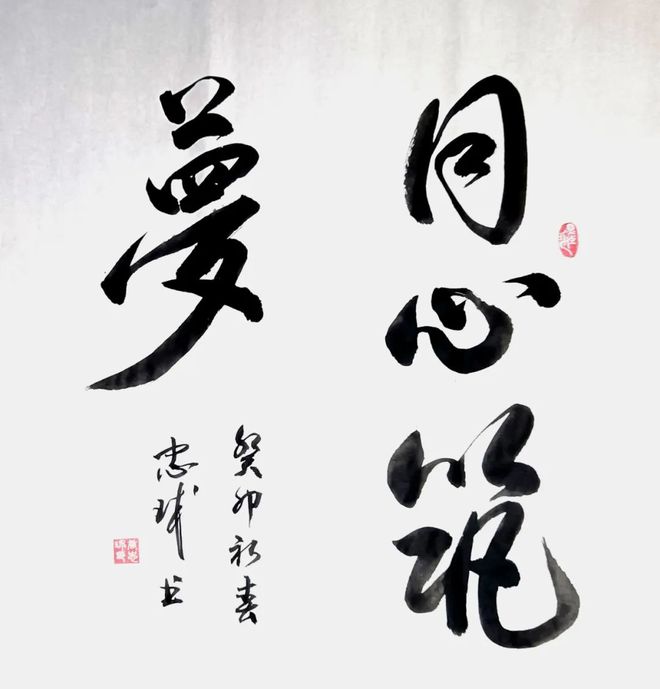 同心筑
夢
癸卯初春
忠球书